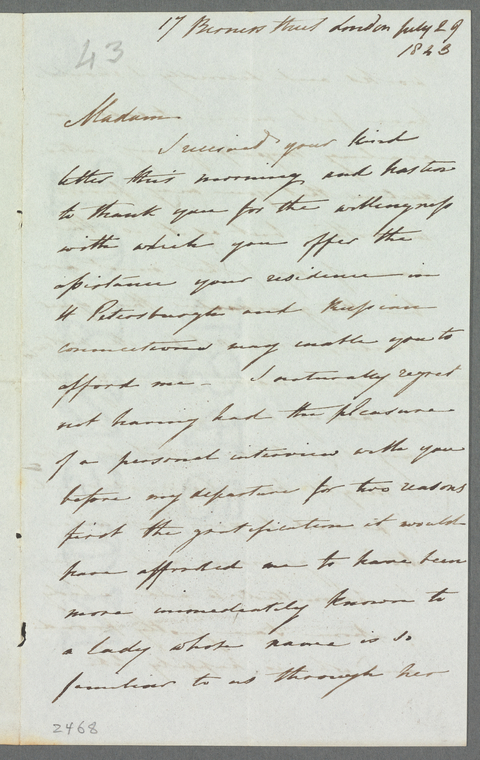 17 Berners Street London July 29
1843
43
Madam
I received your kind
letter this morning and hasten
to thank you for the willingness
with which you offer the
assistance your residence in
St Petersburgh and Russian
connections may enable you to
afford me – I naturally regret
not having had the pleasure
of a personal interview with you
before my departure for two reasons
first the gratification it would
have afforded me to have been
more immediately known to
a lady whose name is so
familiar to us through her
2468